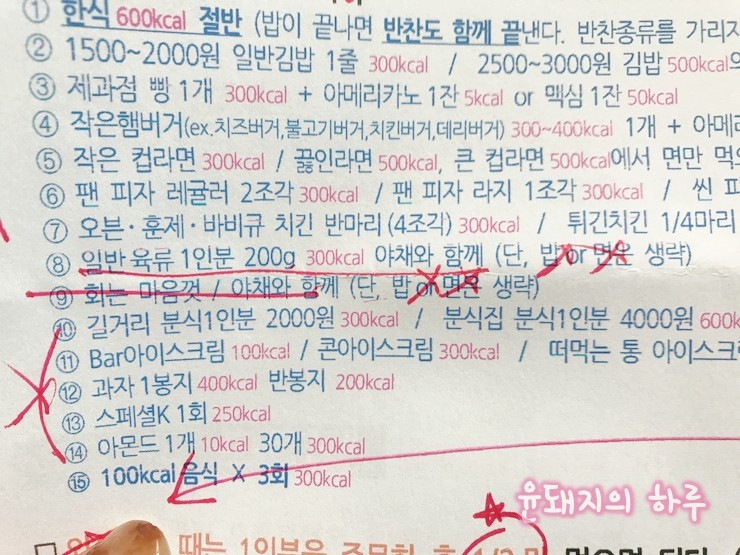 ① 한식 600kcal 절반 (밥이 끝나면 반찬도 함께 끝낸다. 반찬종류를 가리지
② 1500~2000원 일반김밥 1줄 300kcal / 2500~3000원 김밥 500kcal의
③ 제과점 빵 1개 300kcal + 아메리카노 1잔 5kcal or 맥심 1잔 50kcal
④ 작은햄버거(ex.치즈버거,불고기버거,치킨버거,데리버거) 300~400kcal 1개 + 아메리
⑤ 작은 컵라면 300kcal / 끓인라면 500kcal, 큰 컵라면 500kcal에서 면만 먹으
⑥ 팬 피자 레귤러 2조각 300kcal / 팬 피자 라지 1조각 300kcal / 씬 피
⑦ 오븐·훈제·바비큐 치킨 반마리 (4조각) 300kcal / 튀긴치킨 1/4마리
⑧ 일반 육류 1인분 200g 300kcal 야채와 함께 (단, 밥 or 면은 생략)
⑨ 회는 마음껏 / 야채와 함께 (단, 밥 or 면은 생략)
⑩ 길거리 분식1인분 2000원 300kcal / 분식집 분식1인분 4000원 600k
⑪ Bar아이스크림 100kcal / 콘아이스크림 300kcal / 떠먹는 통 아이스크
⑫ 과자 1봉지 400kcal 반봉지 200kcal
⑬ 스페셜K 1회 250kcal
⑭ 아몬드 1개 10kcal 30개 300kcal
⑮ 100kcal 음식 X 3회 300kcal
윤돼지의 하루
때는 1인분을 주문한 후 1/2